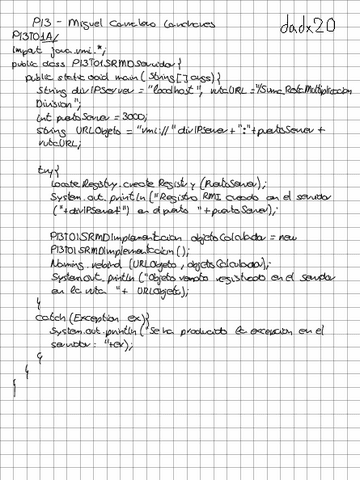 P13 - Miguel Carretero Canchares
dadx20
P13TO1A/
Import java.rmi.*;
public class P13TO1SRMDServidor{
public static void main (String[] args){
String divIPServer = "localhost", rutaURL = "/Suma_RestaMultiplicacion
Division";
int puertoServer = 3000;
String URLObjeto = "rmi://" divIPServer + ":" + puertoServer +
rutaURL;
try{
LocateRegistry.createRegistry (PuertoServer);
System.out.println ("Registro RMI creado en el servidor
("+divIPServer+") en el puerto " + puertoServer);
P13TO1SRMDImplementacion objetoCalculador = new
P13TO1SRMDImplementacion();
Naming.rebind (URLObjeto, objetoCalculador);
System.out.println ("Objeto remoto registrado en el servidor
en la ruta "+ URLObjeto);
}
catch (Exception ex){
System.out.println ("Se ha producido la excepcion en el
servidor: "+ex);
}
}
}